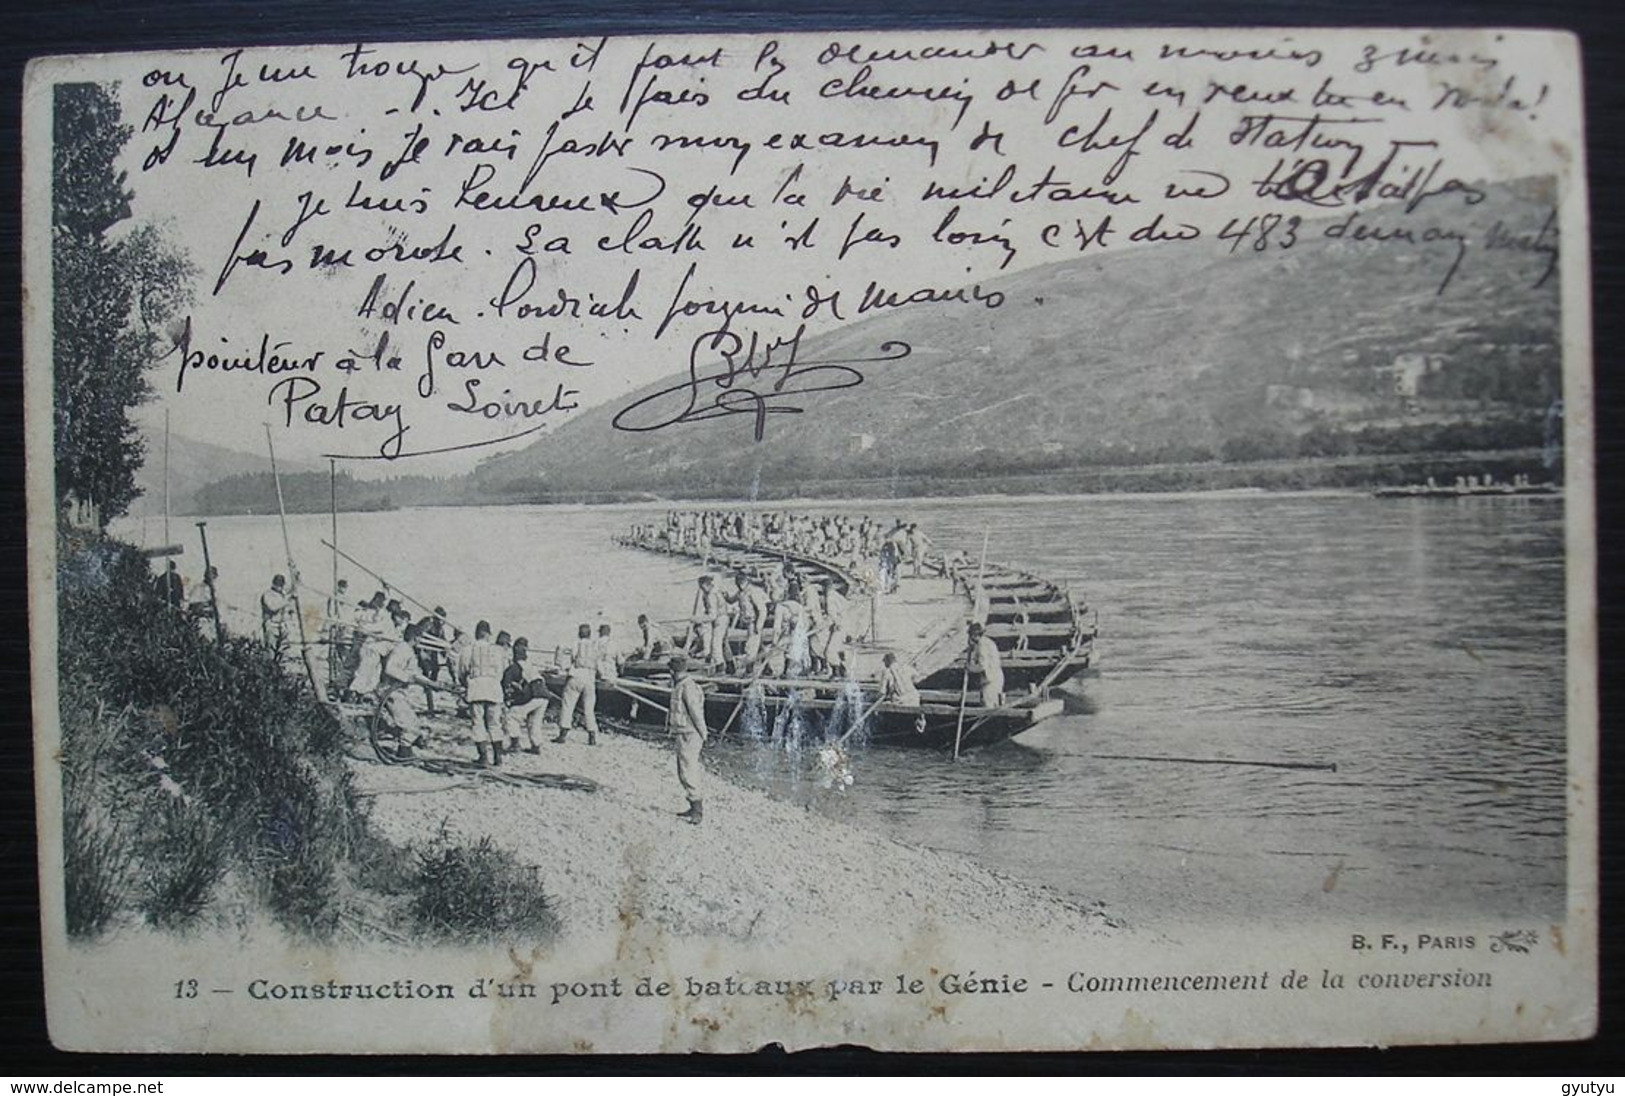 ou je me trouve qu'il faut les demander au moins 3 mois
d'avance - . Ici je fais du chemin de fer en veux tu en voila !
et un mois je vais passer mon examen de chef de station -
Je suis heureux que la vie militaire ne t'est pas
pas morose. La classe n'est pas loin c'est du 483 demain matin
Adieu . Cordiale poignée de mains .
pointeur à la gare de
Patay Loiret
13 – Construction d'un pont de bateaux par le Génie - Commencement de la conversion
B. F., PARIS
www.delcampe.net
gyutyu